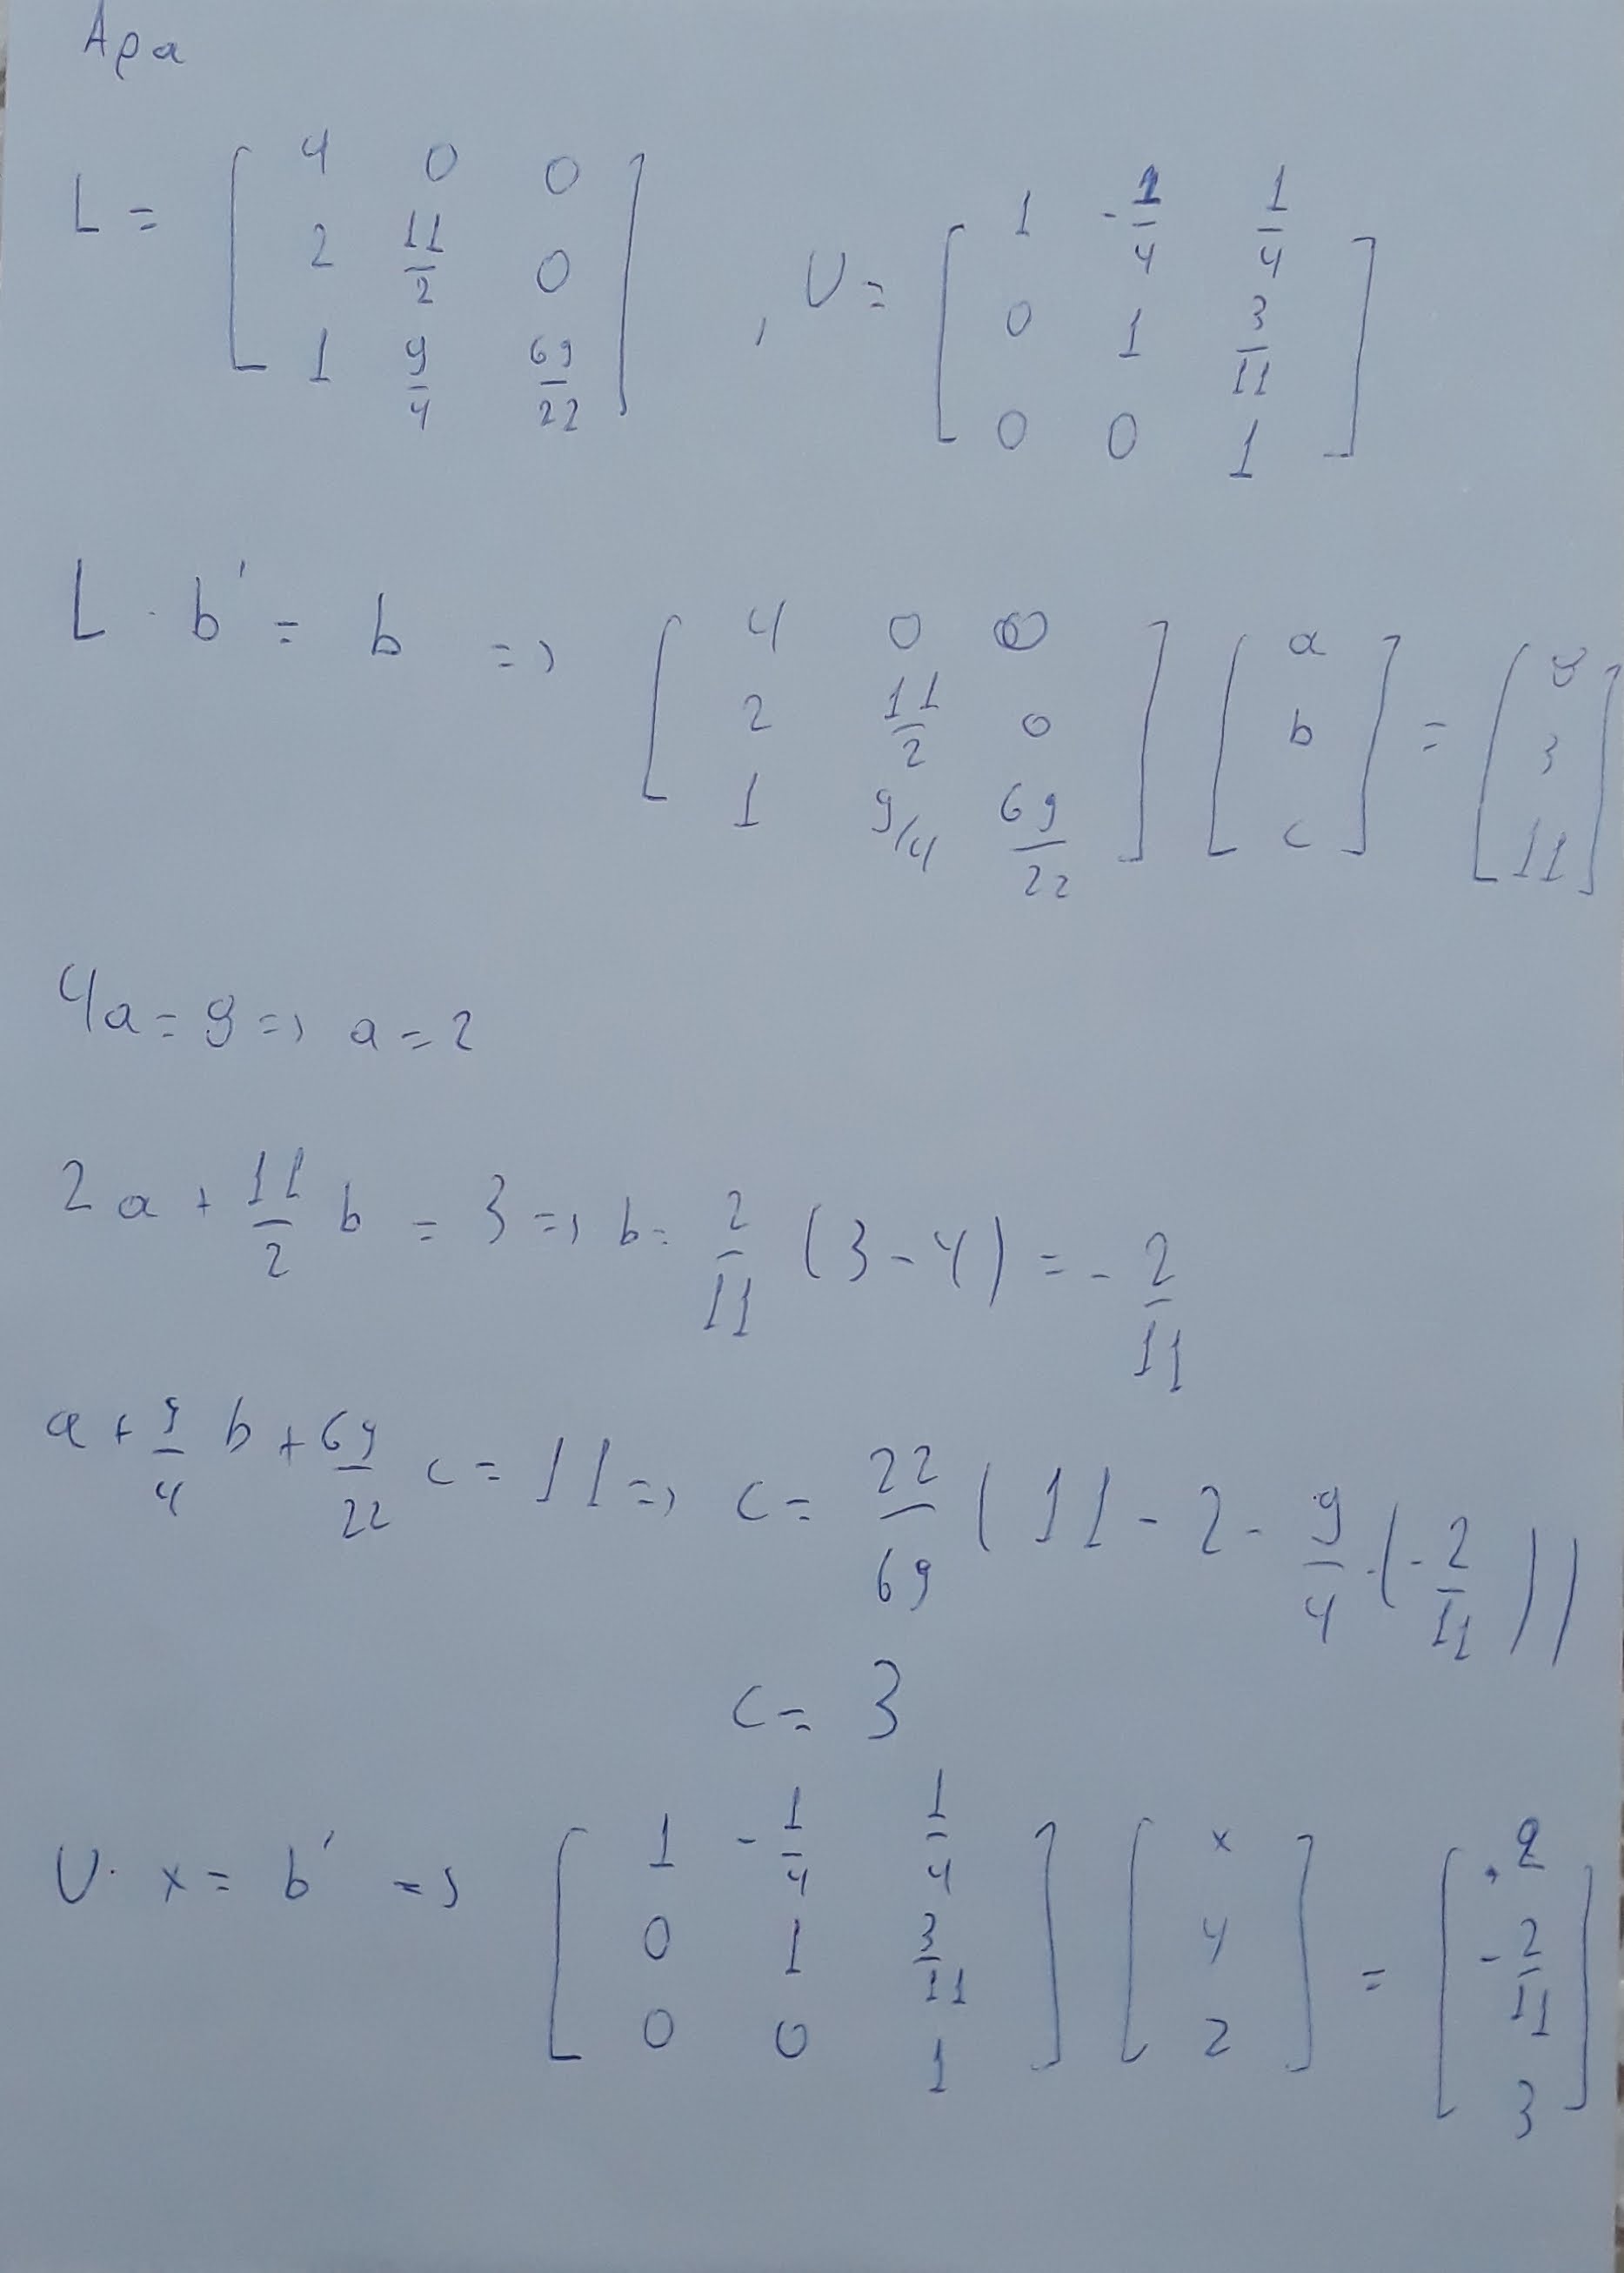 Άρα
L = [ 4 0 0 ; 2 11/2 0 ; 1 9/4 69/22 ] , U = [ 1 -1/4 1/4 ; 0 1 3/11 ; 0 0 1 ]
L · b' = b => [ 4 0 0 ; 2 11/2 0 ; 1 9/4 69/22 ] [ a ; b ; c ] = [ 8 ; 3 ; 11 ]
4a = 8 => a = 2
2a + 11/2 b = 3 => b = 2/11 (3 - 4) = - 2/11
a + 9/4 b + 69/22 c = 11 => c = 22/69 ( 11 - 2 - 9/4 · ( - 2/11 ) )
c = 3
U · x = b' => [ 1 -1/4 1/4 ; 0 1 3/11 ; 0 0 1 ] [ x ; y ; z ] = [ 2 ; -2/11 ; 3 ]